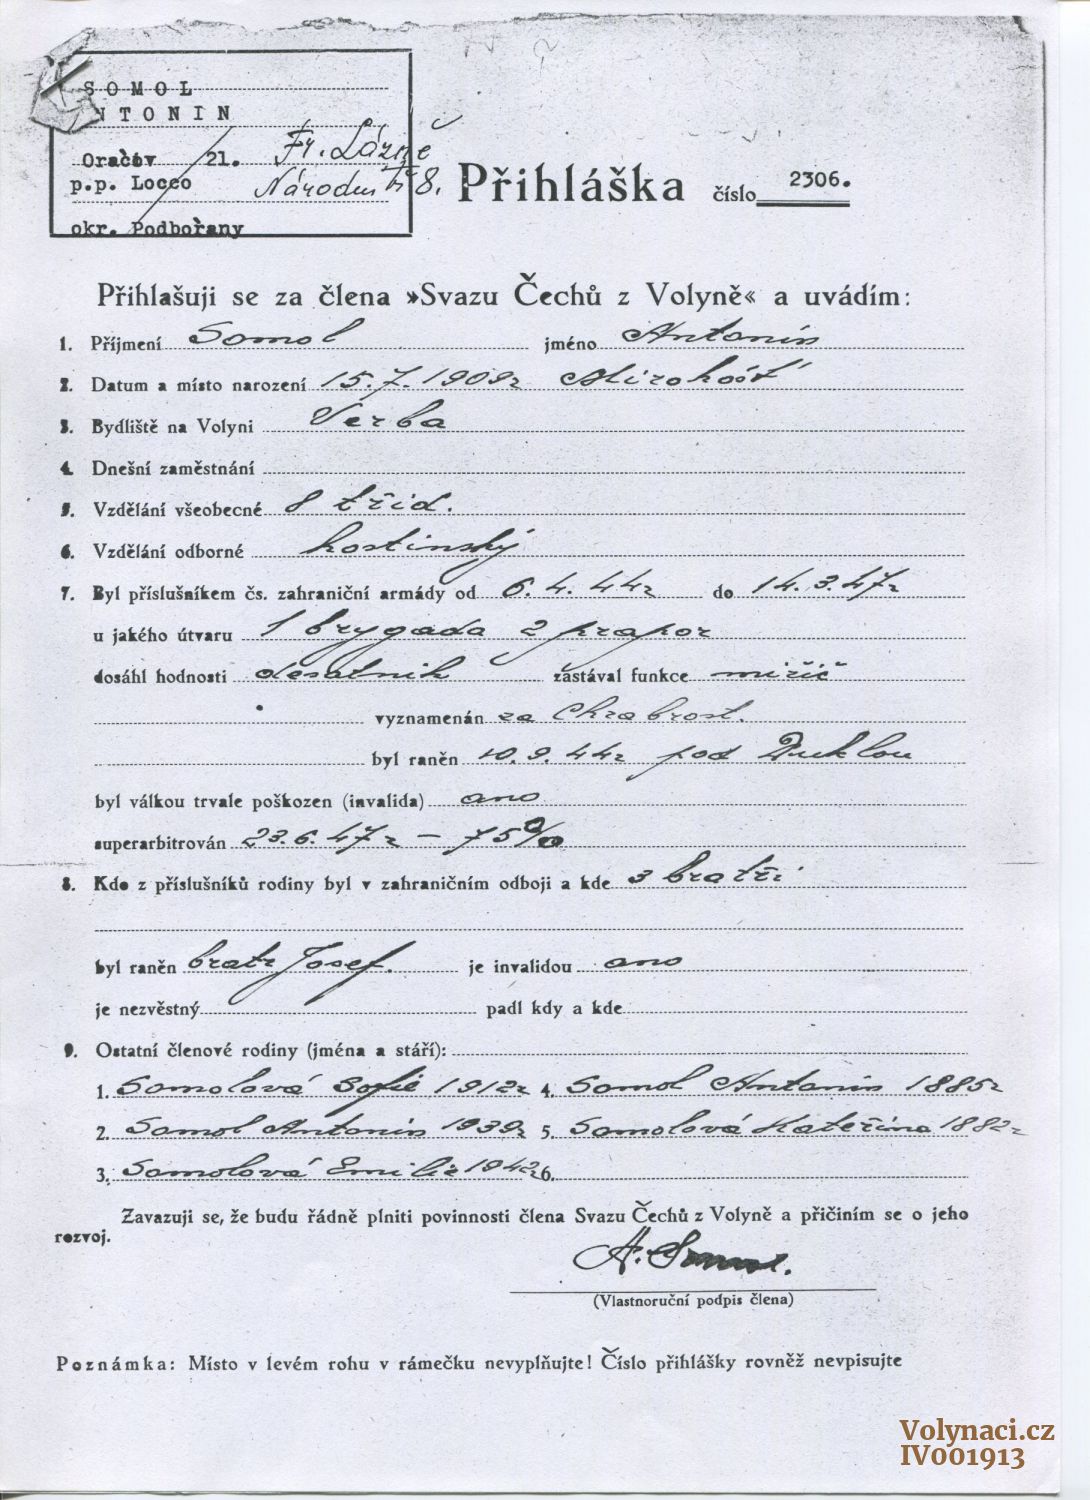 SOMOL
NTONIN
Oračov 21. Fr. Lázně
p.p. Locco Národní tř 8.
okr. Podbořany
Přihláška číslo 2306.
Přihlašuji se za člena »Svazu Čechů z Volyně« a uvádím:
1. Příjmení Somol jméno Antonín
2. Datum a místo narození 15.7.1909r Mirohošť
3. Bydliště na Volyni Verba
4. Dnešní zaměstnání
5. Vzdělání všeobecné 8 tříd.
6. Vzdělání odborné hostinský
7. Byl příslušníkem čs. zahraniční armády od 6.4.44r do 14.3.47r
u jakého útvaru 1 brygada 2 prapor
dosáhl hodnosti desatnik zastával funkce miřič
vyznamenán za Chrabrost.
byl raněn 10.9.44r pod Duklou
byl válkou trvale poškozen (invalida) ano
superarbitrován 23.6.47r – 75%
8. Kdo z příslušníků rodiny byl v zahraničním odboji a kde 3 bratři
byl raněn bratr Josef. je invalidou ano
je nezvěstný padl kdy a kde
9. Ostatní členové rodiny (jména a stáří):
1. Somolová Sofie 1912r 4. Somol Antonín 1885r
2. Somol Antonín 1939r 5. Somolová Kateřina 1882r
3. Somolová Emilie 1942r 6.
Zavazuji se, že budu řádně plniti povinnosti člena Svazu Čechů z Volyně a přičiním se o jeho
rozvoj.
A. Somol.
(Vlastnoruční podpis člena)
Poznámka: Místo v levém rohu v rámečku nevyplňujte! Číslo přihlášky rovněž nevpisujte
Volynaci.cz
IV001913